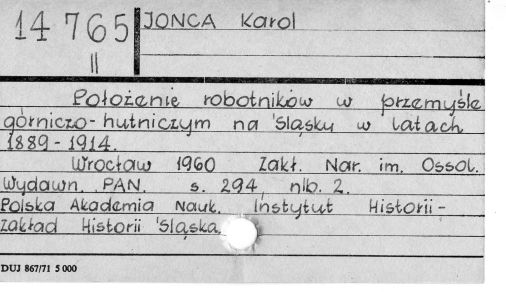 14 765 JONCA Karol
II
Położenie robotników w przemyśle
górniczo-hutniczym na Śląsku w latach
1889-1914.
Wrocław 1960 Zakł. Nar. im. Ossol.
Wydawn. PAN. s. 294, nlb. 2.
Polska Akademia Nauk. Instytut Historii-
Zakład Historii Śląska.
DUJ 867/71 5 000